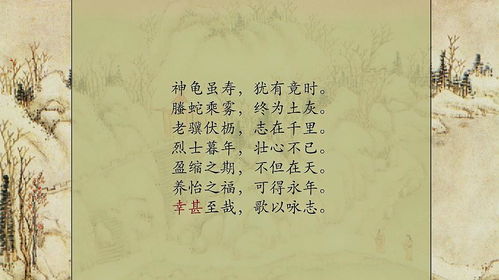 神龟虽寿，犹有竟时。
螣蛇乘雾，终为土灰。
老骥伏枥，志在千里。
烈士暮年，壮心不已。
盈缩之期，不但在天。
养怡之福，可得永年。
幸甚至哉，歌以咏志。